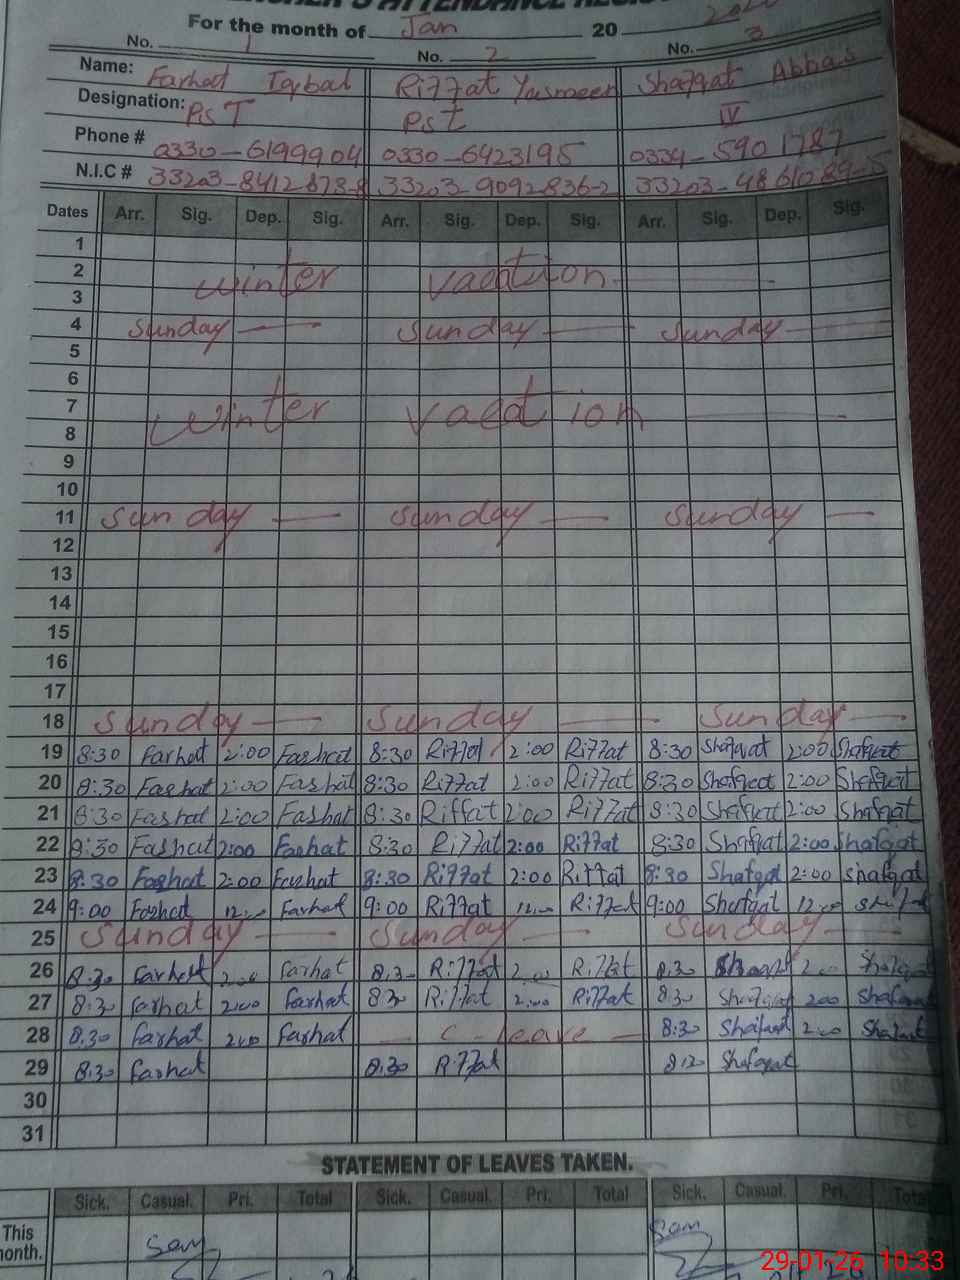 TEACHER'S ATTENDANCE REGIS
For the month of Jan 20
No. 1 No. 2 No. 3
Name: Farhat Iqbal Riffat Yasmeen Shafqat Abbas
Designation: PST PST IV
Phone # 0330-6199904 0330-6423195 0334-5901787
N.I.C # 33203-8412878-8 33203-9092836-2 33203-4861089-5
Dates Arr. Sig. Dep. Sig. Arr. Sig. Dep. Sig. Arr. Sig. Dep. Sig.
1
2 winter vacation
3
4 Sunday Sunday Sunday
5
6
7 winter vacation
8
9
10
11 Sunday Sunday Sunday
12
13
14
15
16
17
18 Sunday Sunday Sunday
19 8:30 Farhat 2:00 Farhat 8:30 Riffat 2:00 Riffat 8:30 Shafqat 2:00 Shafqat
20 8:30 Farhat 2:00 Farhat 8:30 Riffat 2:00 Riffat 8:30 Shafqat 2:00 Shafqat
21 8:30 Farhat 2:00 Farhat 8:30 Riffat 2:00 Riffat 8:30 Shafqat 2:00 Shafqat
22 8:30 Farhat 2:00 Farhat 8:30 Riffat 2:00 Riffat 8:30 Shafqat 2:00 Shafqat
23 8:30 Farhat 2:00 Farhat 8:30 Riffat 2:00 Riffat 8:30 Shafqat 2:00 Shafqat
24 9:00 Farhat 12:00 Farhat 9:00 Riffat 12:00 Riffat 9:00 Shafqat 12:00 Shafqat
25 Sunday Sunday Sunday
26 8:30 Farhat 2:00 Farhat 8:30 Riffat 2:00 Riffat 8:30 Shafqat 2:00 Shafqat
27 8:30 Farhat 2:00 Farhat 8:30 Riffat 2:00 Riffat 8:30 Shafqat 2:00 Shafqat
28 8:30 Farhat 2:00 Farhat C-leave 8:30 Shafqat 2:00 Shafqat
29 8:30 Farhat 8:30 Riffat Shafqat
30
31
STATEMENT OF LEAVES TAKEN.
Sick. Casual. Pri. Total Sick. Casual. Pri. Total Sick. Casual. Pri. Total
This
month.
29-01-26 10:33